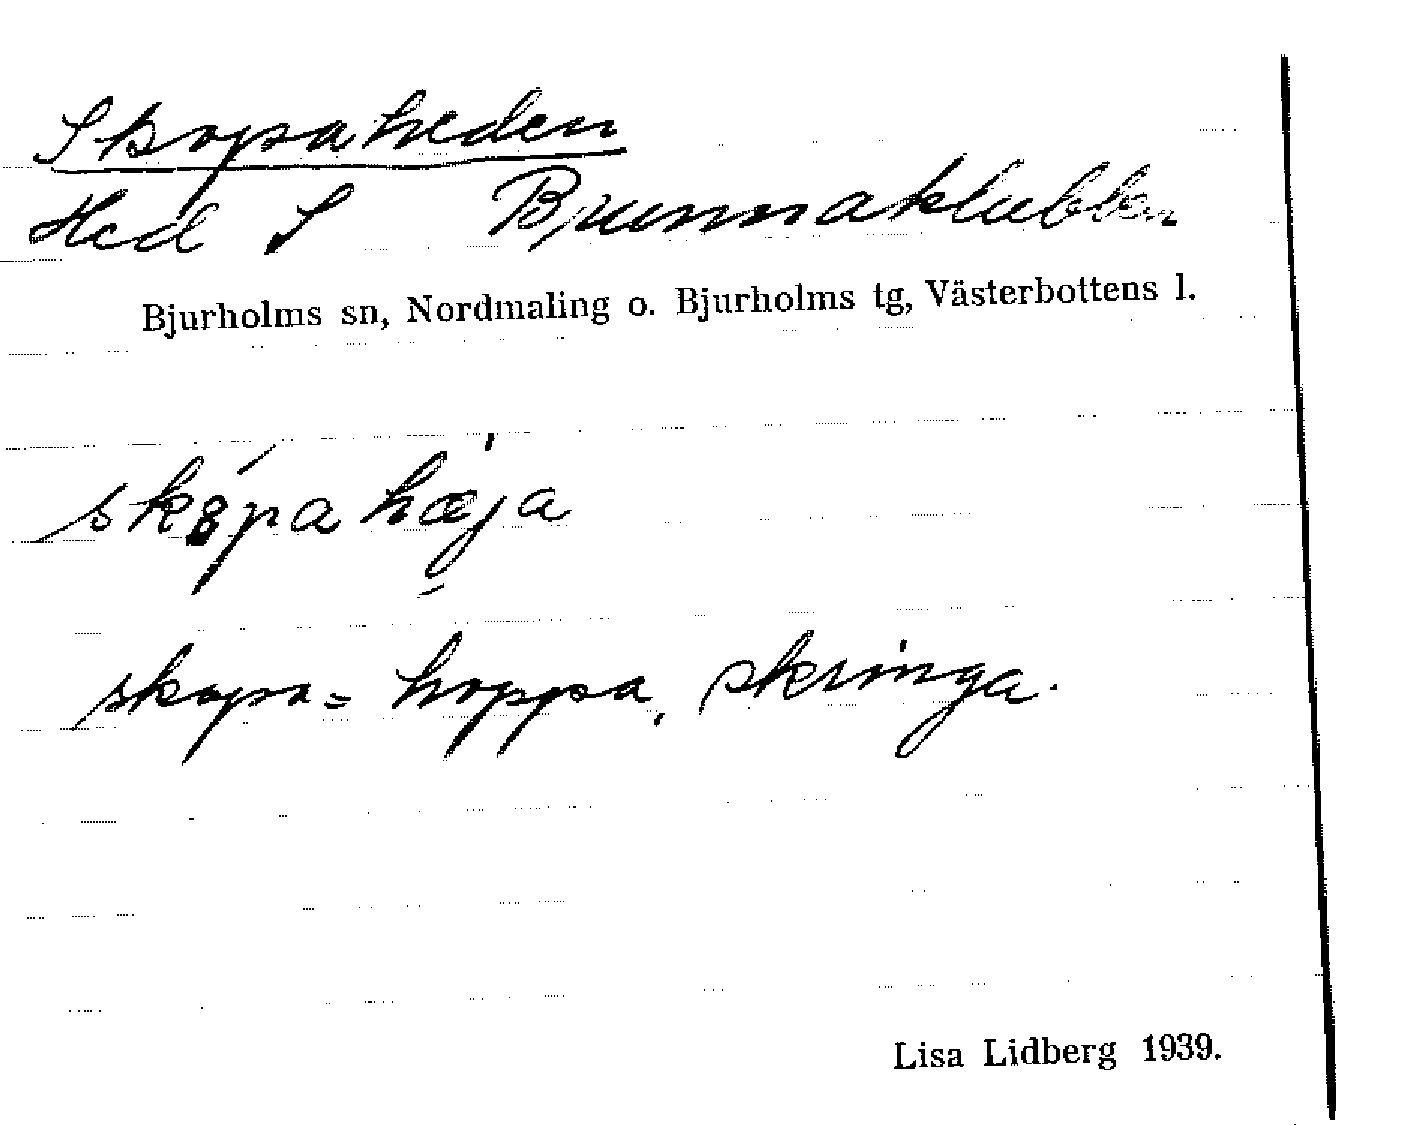 Skopaheden
Hed S Brunnaklubben
Bjurholms sn, Nordmaling o. Bjurholms tg, Västerbottens l.
skopa hæja
skopa = hoppa, skringa.
Lisa Lidberg 1939.